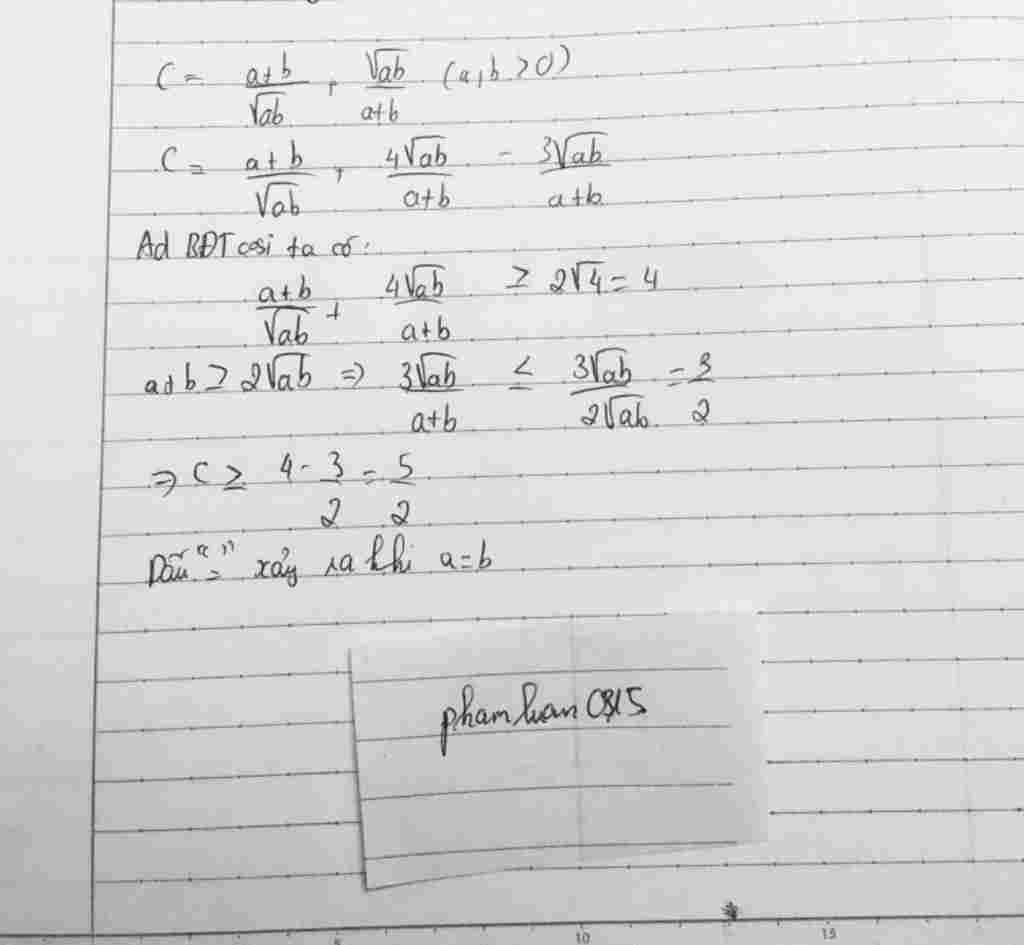 C = (a+b)/√ab + √ab/(a+b) (a,b >0)
C = (a+b)/√ab + 4√ab/(a+b) - 3√ab/(a+b)
Ad BĐT cosi ta có:
(a+b)/√ab + 4√ab/(a+b) ≥ 2√4 = 4
a+b ≥ 2√ab ⇒ 3√ab/(a+b) ≤ 3√ab/2√ab = 3/2
⇒ C ≥ 4 - 3/2 = 5/2
Dấu "=" xảy ra khi a=b
5 10 15